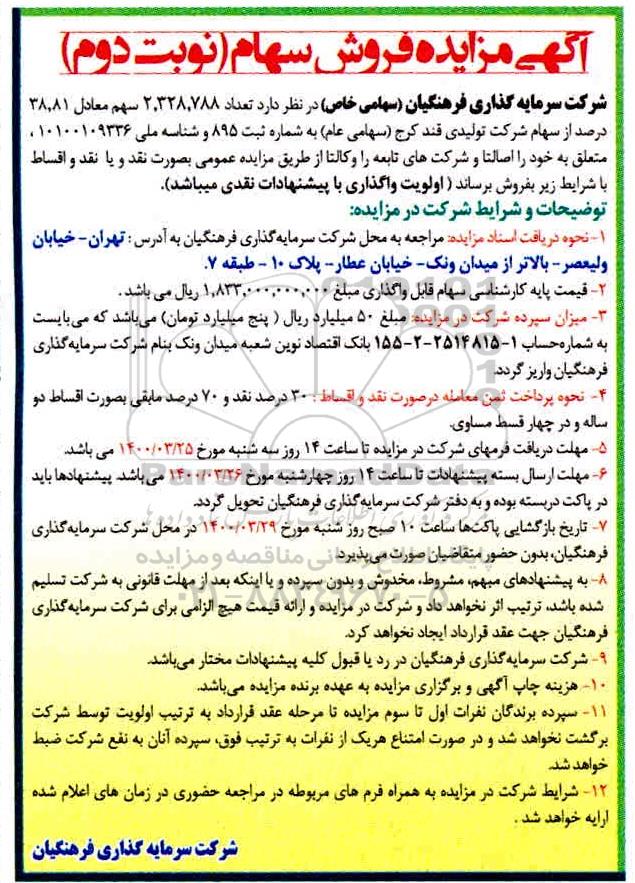 آگهی مزایده فروش سهام (نوبت دوم)
شرکت سرمایه گذاری فرهنگیان (سهامی خاص) در نظر دارد تعداد ۲,۳۲۸,۷۸۸ سهم معادل ۳۸,۸۱
درصد از سهام شرکت تولیدی قند کرج (سهامی عام) به شماره ثبت ۸۹۵ و شناسه ملی ۱۰۱۰۰۱۰۹۳۳۶ ،
متعلق به خود را اصالتا و شرکت های تابعه را وکالتا از طریق مزایده عمومی بصورت نقد و یا نقد و اقساط
با شرایط زیر بفروش برساند ( اولویت واگذاری با پیشنهادات نقدی میباشد).
توضیحات و شرایط شرکت در مزایده:
۱- نحوه دریافت اسناد مزایده: مراجعه به محل شرکت سرمایه‌گذاری فرهنگیان به آدرس : تهران- خیابان
ولیعصر- بالاتر از میدان ونک- خیابان عطار- پلاک ۱۰ - طبقه ۷.
۲- قیمت پایه کارشناسی سهام قابل واگذاری مبلغ ۱,۸۳۳,۰۰۰,۰۰۰,۰۰۰ ریال می باشد .
۳- میزان سپرده شرکت در مزایده: مبلغ ۵۰ میلیارد ریال ( پنج میلیارد تومان) می‌باشد که می‌بایست
به شماره‌حساب ۱-۲۵۱۴۸۱۵-۲-۱۵۵ بانک اقتصاد نوین شعبه میدان ونک بنام شرکت سرمایه‌گذاری
فرهنگیان واریز گردد.
۴- نحوه پرداخت ثمن معامله درصورت نقد و اقساط : ۳۰ درصد نقد و ۷۰ درصد مابقی بصورت اقساط دو
ساله و در چهار قسط مساوی.
۵- مهلت دریافت فرمهای شرکت در مزایده تا ساعت ۱۴ روز سه شنبه مورخ ۱۴۰۰/۰۳/۲۵ می باشد.
۶- مهلت ارسال بسته پیشنهادات تا ساعت ۱۴ روز چهارشنبه مورخ ۱۴۰۰/۰۳/۲۶ می‌باشد. پیشنهادها باید
در پاکت دربسته بوده و به دفتر شرکت سرمایه‌گذاری فرهنگیان تحویل گردد.
۷- تاریخ بازگشایی پاکت‌ها ساعت ۱۰ صبح روز شنبه مورخ ۱۴۰۰/۰۳/۲۹ در محل شرکت سرمایه‌گذاری
فرهنگیان، بدون حضور متقاضیان صورت می‌پذیرد.
۸- به پیشنهادهای مبهم، مشروط، مخدوش و بدون سپرده و یا اینکه بعد از مهلت قانونی به شرکت تسلیم
شده باشد، ترتیب اثر نخواهد داد و شرکت در مزایده و ارائه قیمت هیچ الزامی برای شرکت سرمایه‌گذاری
فرهنگیان جهت عقد قرارداد ایجاد نخواهد کرد.
۹- شرکت سرمایه‌گذاری فرهنگیان در رد یا قبول کلیه پیشنهادات مختار می‌باشد.
۱۰- هزینه چاپ آگهی و برگزاری مزایده به عهده برنده مزایده می‌باشد.
۱۱- سپرده برندگان نفرات اول تا سوم مزایده تا مرحله عقد قرارداد به ترتیب اولویت توسط شرکت
برگشت نخواهد شد و در صورت امتناع هریک از نفرات به ترتیب فوق، سپرده آنان به نفع شرکت ضبط
خواهد شد.
۱۲- شرایط شرکت در مزایده به همراه فرم های مربوطه در مراجعه حضوری در زمان های اعلام شده
ارایه خواهد شد .
شرکت سرمایه گذاری فرهنگیان
پایگاه اطلاع رسانی مناقصه و مزایده
۰۲۱-۸۸۳۴۹۶۷۰-۵